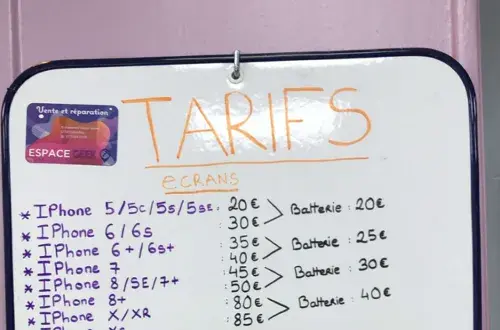 Vente et réparation
ESPACE GEEK
TARIFS
ECRANS
* IPhone 5/5c/5s/5SE : 20€ > Batterie : 20€
* IPhone 6/6s : 30€
* IPhone 6+/6s+ : 35€ > Batterie : 25€
* IPhone 7 : 40€
* IPhone 8/SE/7+ : 45€ > Batterie : 30€
* IPhone 8+ : 50€
* IPhone X/XR : 80€ > Batterie : 40€
: 85€